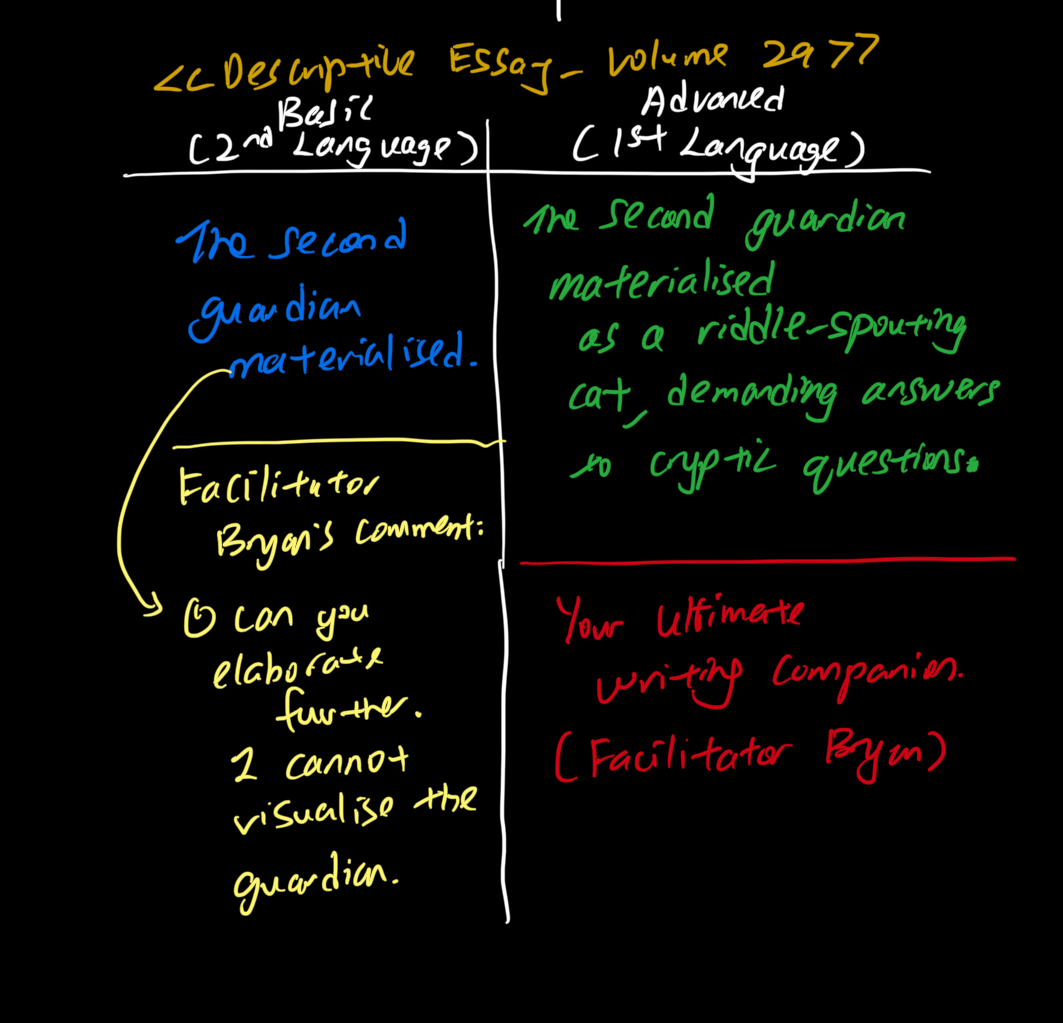 <<Descriptive Essay_ Volume 29>>
Basic
(2nd Language)
Advanced
(1st Language)
The second
guardian
materialised.
Facilitator
Bryan's comment:
① Can you
elaborate
further.
I cannot
visualise the
guardian.
The second guardian
materialised
as a riddle-spouting
cat, demanding answers
to cryptic questions.
Your ultimate
writing companion.
(Facilitator Bryan)